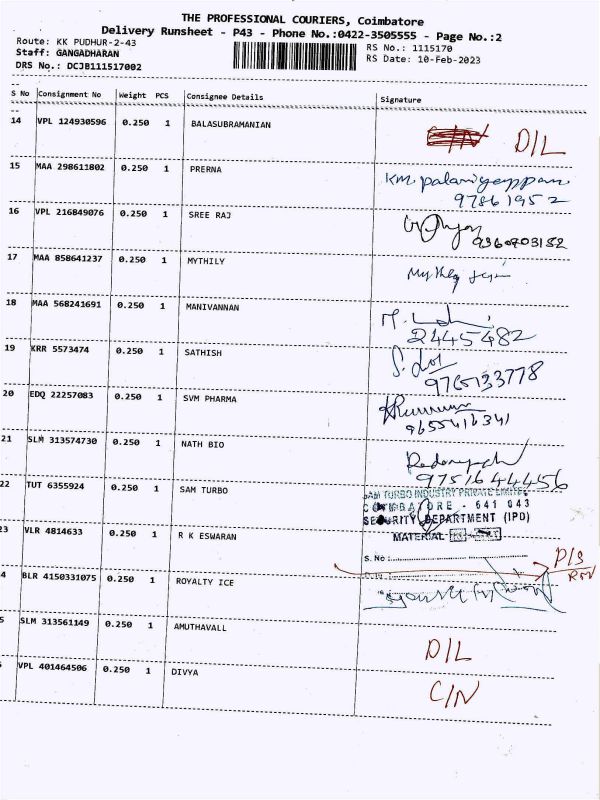 THE PROFESSIONAL COURIERS, Coimbatore
Delivery Runsheet - P43 - Phone No.:0422-3505555 - Page No.:2
Route: KK PUDHUR-2-43
RS No.: 1115170
Staff: GANGADHARAN
RS Date: 10-Feb-2023
DRS No.: DCJB111517002
S No Consignment No Weight PCS Consignee Details Signature
14 VPL 124930596 0.250 1 BALASUBRAMANIAN D/L
15 MAA 298611802 0.250 1 PRERNA Km. palaniyappan
97861952
16 VPL 216849076 0.250 1 SREE RAJ
9360703152
17 MAA 858641237 0.250 1 MYTHILY
18 MAA 568241691 0.250 1 MANIVANNAN
2445482
19 KRR 5573474 0.250 1 SATHISH
9765133778
20 EDQ 22257083 0.250 1 SVM PHARMA
9655416341
21 SLM 313574730 0.250 1 NATH BIO
9751644456
22 TUT 6355924 0.250 1 SAM TURBO SAM TURBO INDUSTRY PRIVATE LIMITED
COIMBATORE - 641 043
SECURITY DEPARTMENT (IPD)
MATERIAL
23 VLR 4814633 0.250 1 R K ESWARAN
S. No :
D/S
4 BLR 4150331075 0.250 1 ROYALTY ICE
5 SLM 313561149 0.250 1 AMUTHAVALL D/L
VPL 401464506 0.250 1 DIVYA C/N